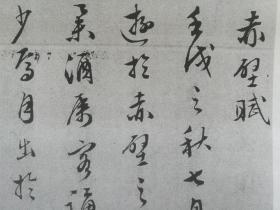 赤壁賦
壬戌之秋七月
遊於赤壁之
舉酒屬客誦
少焉月出於